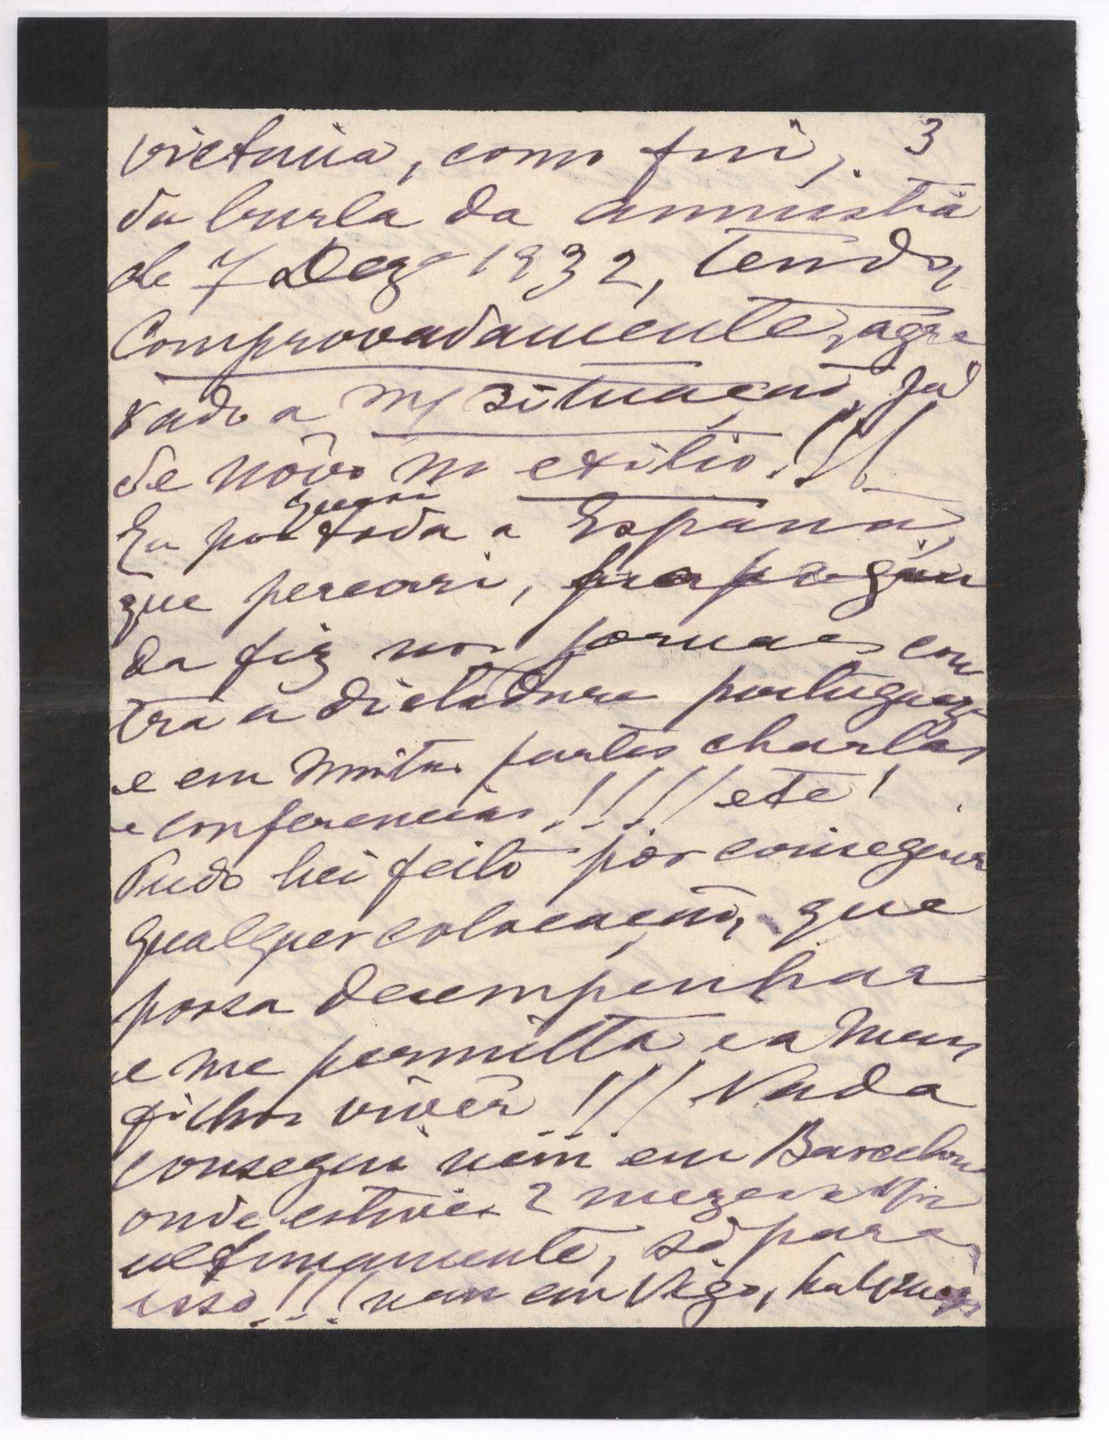 victima, como fui, 3
da burla da amnistia
de 7 Dezº 1932, tendo,
Comprovadamente, agra
vado a m/ situação, já
de nôvo no exilio!!!
Eu por quasi toda a España,
que percorri, propagan
da fiz nos jornaes con
tra a dictadura portugueza
e em muitas partes charlas
e conferencias!!!! etc!
Tudo hei feito por conseguir
qualquer colocação, que
possa desempenhar
e me permitta e a meus
filhos viver!!! Nada
consegui nem em Barcelona
onde estive 2 mezes
ultimamente, só para
isso!!! nem em Vigo,